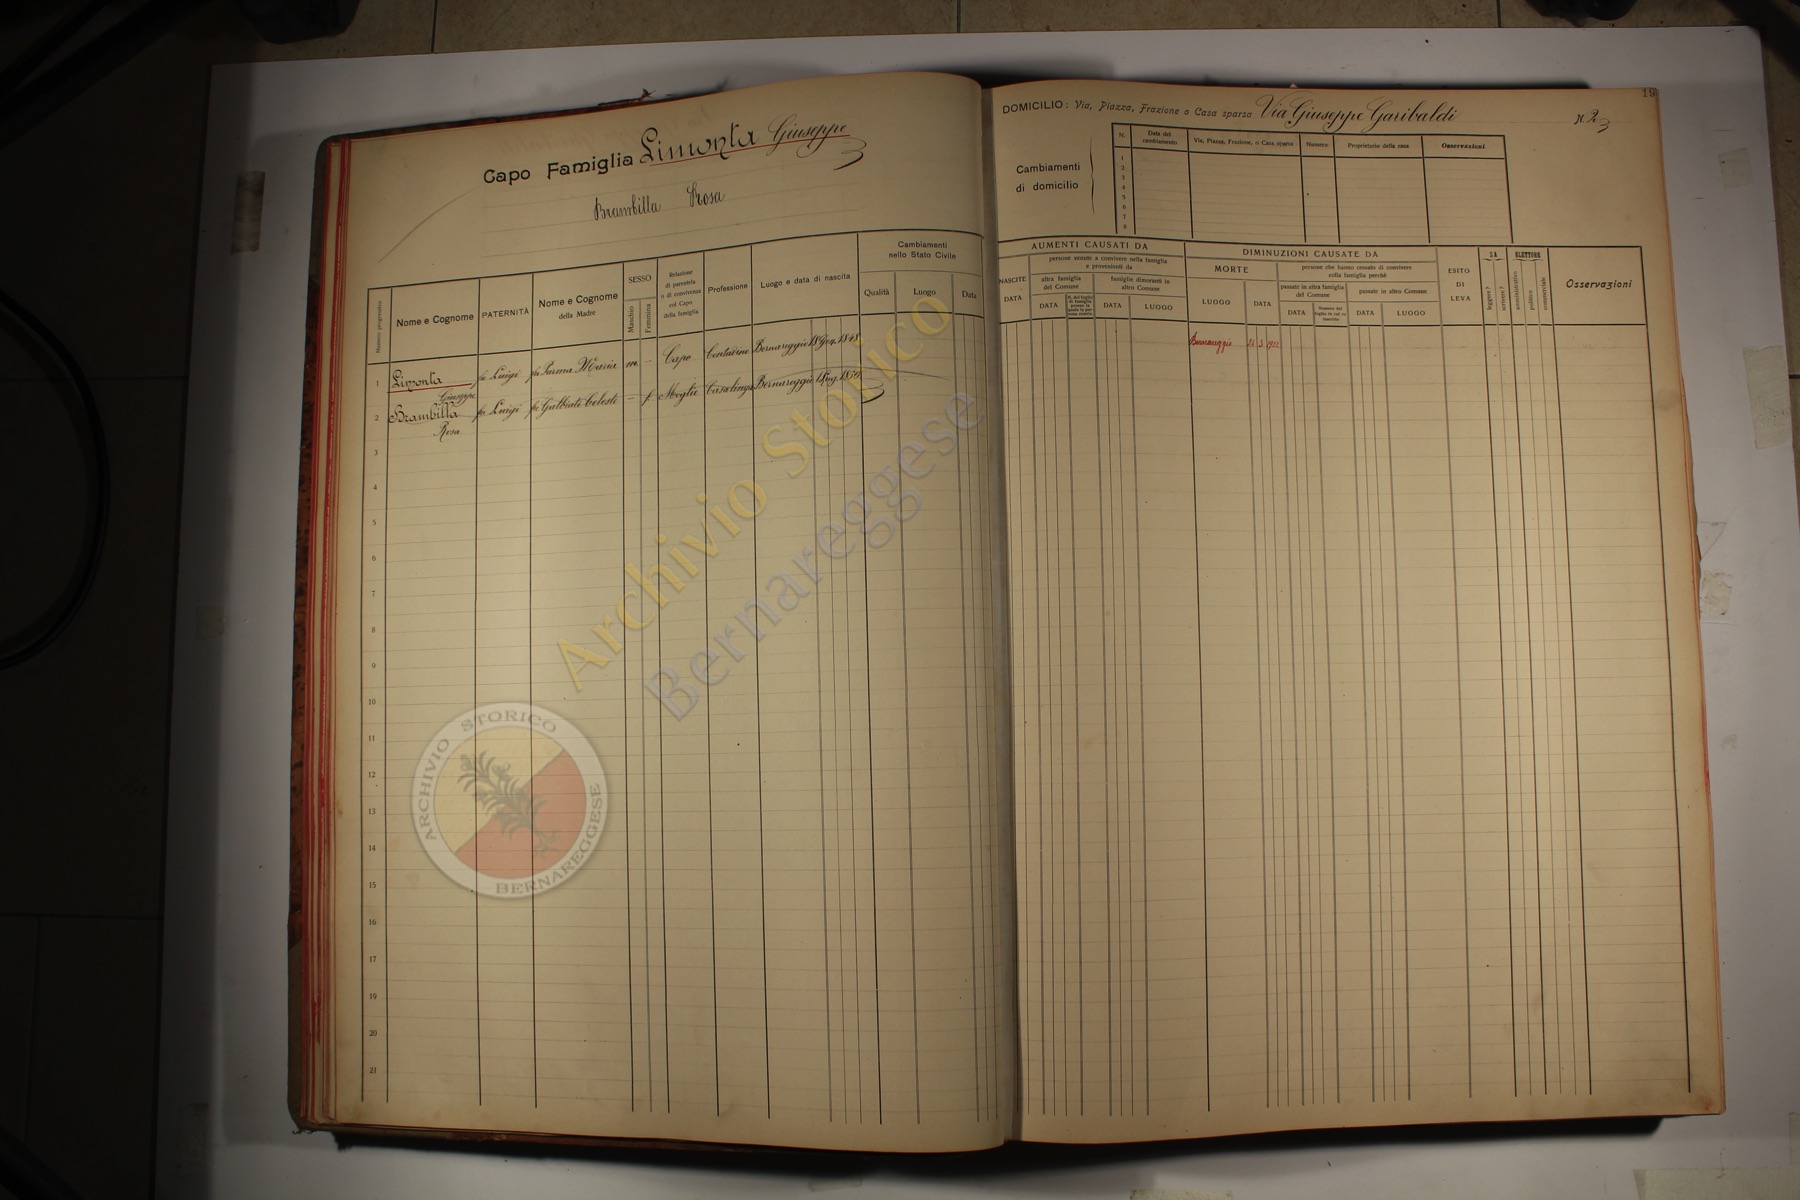 Capo Famiglia Limonta Giuseppe
Brambilla Rosa
Numero progressivo
Nome e Cognome
PATERNITÀ
Nome e Cognome
della Madre
SESSO
Maschio
Femmina
Relazione
di parentela
o di convivenza
col Capo
della famiglia
Professione
Luogo e data di nascita
Cambiamenti
nello Stato Civile
Qualità
Luogo
Data
1 Limonta fu Luigi fu Parma Maria m. – Capo Contadino Bernareggio 18 Gen. 1848
Giuseppe
2 Brambilla fu Luigi fu Galbiati Celeste – f. Moglie Casalinga Bernareggio
Rosa
3
4
5
6
7
8
9
10
11
12
13
14
15
16
17
18
19
20
21
19
DOMICILIO: Via, Piazza, Frazione o Casa sparsa Via Giuseppe Garibaldi N. 2
Cambiamenti
di domicilio
N.
Data del
cambiamento
Via, Piazza, Frazione, o Casa sparsa
Numero
Proprietario della casa
Osservazioni
1
2
3
4
5
6
7
8
AUMENTI CAUSATI DA
NASCITE
DATA
persone venute a convivere nella famiglia
e provenienti da
altra famiglia
del Comune
DATA
famiglie dimoranti in
altro Comune
DATA
LUOGO
DIMINUZIONI CAUSATE DA
MORTE
LUOGO
DATA
persone che hanno cessato di convivere
colla famiglia perchè
passate in altra famiglia
del Comune
DATA
passate in altro Comune
DATA
LUOGO
ESITO
DI
LEVA
SA
leggere?
scrivere?
ELETTORE
amministrativo
politico
commerciale
Osservazioni
Bernareggio 24 3 1922
Archivio Storico
Bernareggese
ARCHIVIO STORICO
BERNAREGGESE